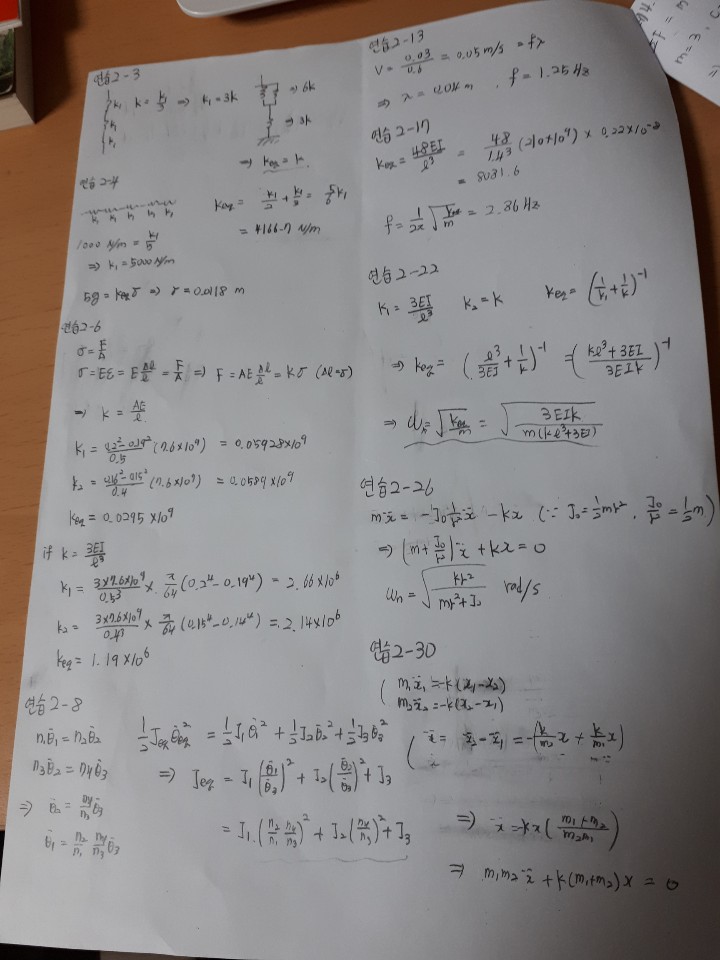 연습2-3
k₁
k₁
k₁
k = k₁/3 ⇒ k₁ = 3k
⇒ 6k
⇒ 3k
⇒ keq = k
연습2-4
k₁ k₁ k₁ k₁ k₁
1000 N/m = k₁/5
⇒ k₁ = 5000 N/m
keq = k₁/2 + k₁/3 = 5/6 k₁
= 4166.7 N/m
5g = keq σ ⇒ σ = 0.0118 m
연습2-6
σ = F/A
σ = Eε = E Δl/l = F/A ⇒ F = AE Δl/l = kσ (Δl = σ)
⇒ k = AE/l
k₁ = (0.2² - 0.19²)/0.5 (7.6×10⁹) = 0.05928×10⁹
k₂ = /0.4 (7.6×10⁹) = 0.0589×10⁹
keq = 0.0295×10⁹
if k = 3EI/l³
k₁ = (3×7.6×10⁹)/0.5³ × π/64 (0.2⁴ - 0.19⁴) = 2.66×10⁶
k₂ = (3×7.6×10⁹)/0.4³ × π/64 (0.15⁴ - 0.14⁴) = 2.14×10⁶
keq = 1.19×10⁶
연습2-8
n₁θ̇₁ = n₂θ̇₂
n₃θ̇₂ = n₄θ̇₃
⇒ θ̇₂ = n₄/n₃ θ̇₃
θ̇₁ = n₂/n₁ n₄/n₃ θ̇₃
1/2 Jeq θ̇eq² = 1/2 J₁θ̇₁² + 1/2 J₂θ̇₂² + 1/2 J₃θ̇₃²
⇒ Jeq = J₁(θ̇₁/θ̇₃)² + J₂(θ̇₂/θ̇₃)² + J₃
= J₁·(n₂/n₁ n₄/n₃)² + J₂(n₄/n₃)² + J₃
연습2-13
V = 0.03/0.6 = 0.05 m/s = fλ
⇒ λ = 0.04 m, f = 1.25 Hz
연습2-17
keq = 48EI/l³ = 48/1.43 (210×10⁹) × 0.22×10⁻⁸
= 8031.6
f = 1/2π √(keq/m) = 2.36 Hz
연습2-22
k₁ = 3EI/l³ k₂ = k keq = (1/k₁ + 1/k)⁻¹
⇒ keq = (l³/3EI + 1/k)⁻¹ = ((kl³+3EI)/3EIk)⁻¹
⇒ ωn = √(keq/m) = √(3EIk/m(kl³+3EI))
연습2-26
mẍ = -J₀ 1/r² ẍ - kx (∵ J₀ = 1/2 mr², J₀/r² = 1/2 m)
⇒ (m + J₀/r²)ẍ + kx = 0
ωn = √(kr²/(mr²+J₀)) rad/s
연습2-30
m₁ẍ₁ = -k(x₁-x₂)
m₂ẍ₂ = -k(x₂-x₁)
ẍ = ẍ₂ - ẍ₁ = -(k/m₂ x + k/m₁ x)
⇒ ẍ = kx((m₁+m₂)/m₂m₁)
⇒ m₁m₂ẍ + k(m₁+m₂)x = 0